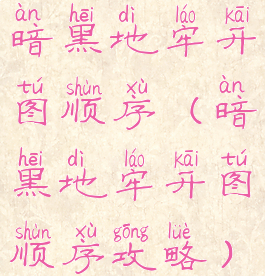 àn hēi dì láo kāi
暗黑地牢开
tú shùn xù àn
图顺序（暗
hēi dì láo kāi tú
黑地牢开图
shùn xù gōng lüè
顺序攻略）